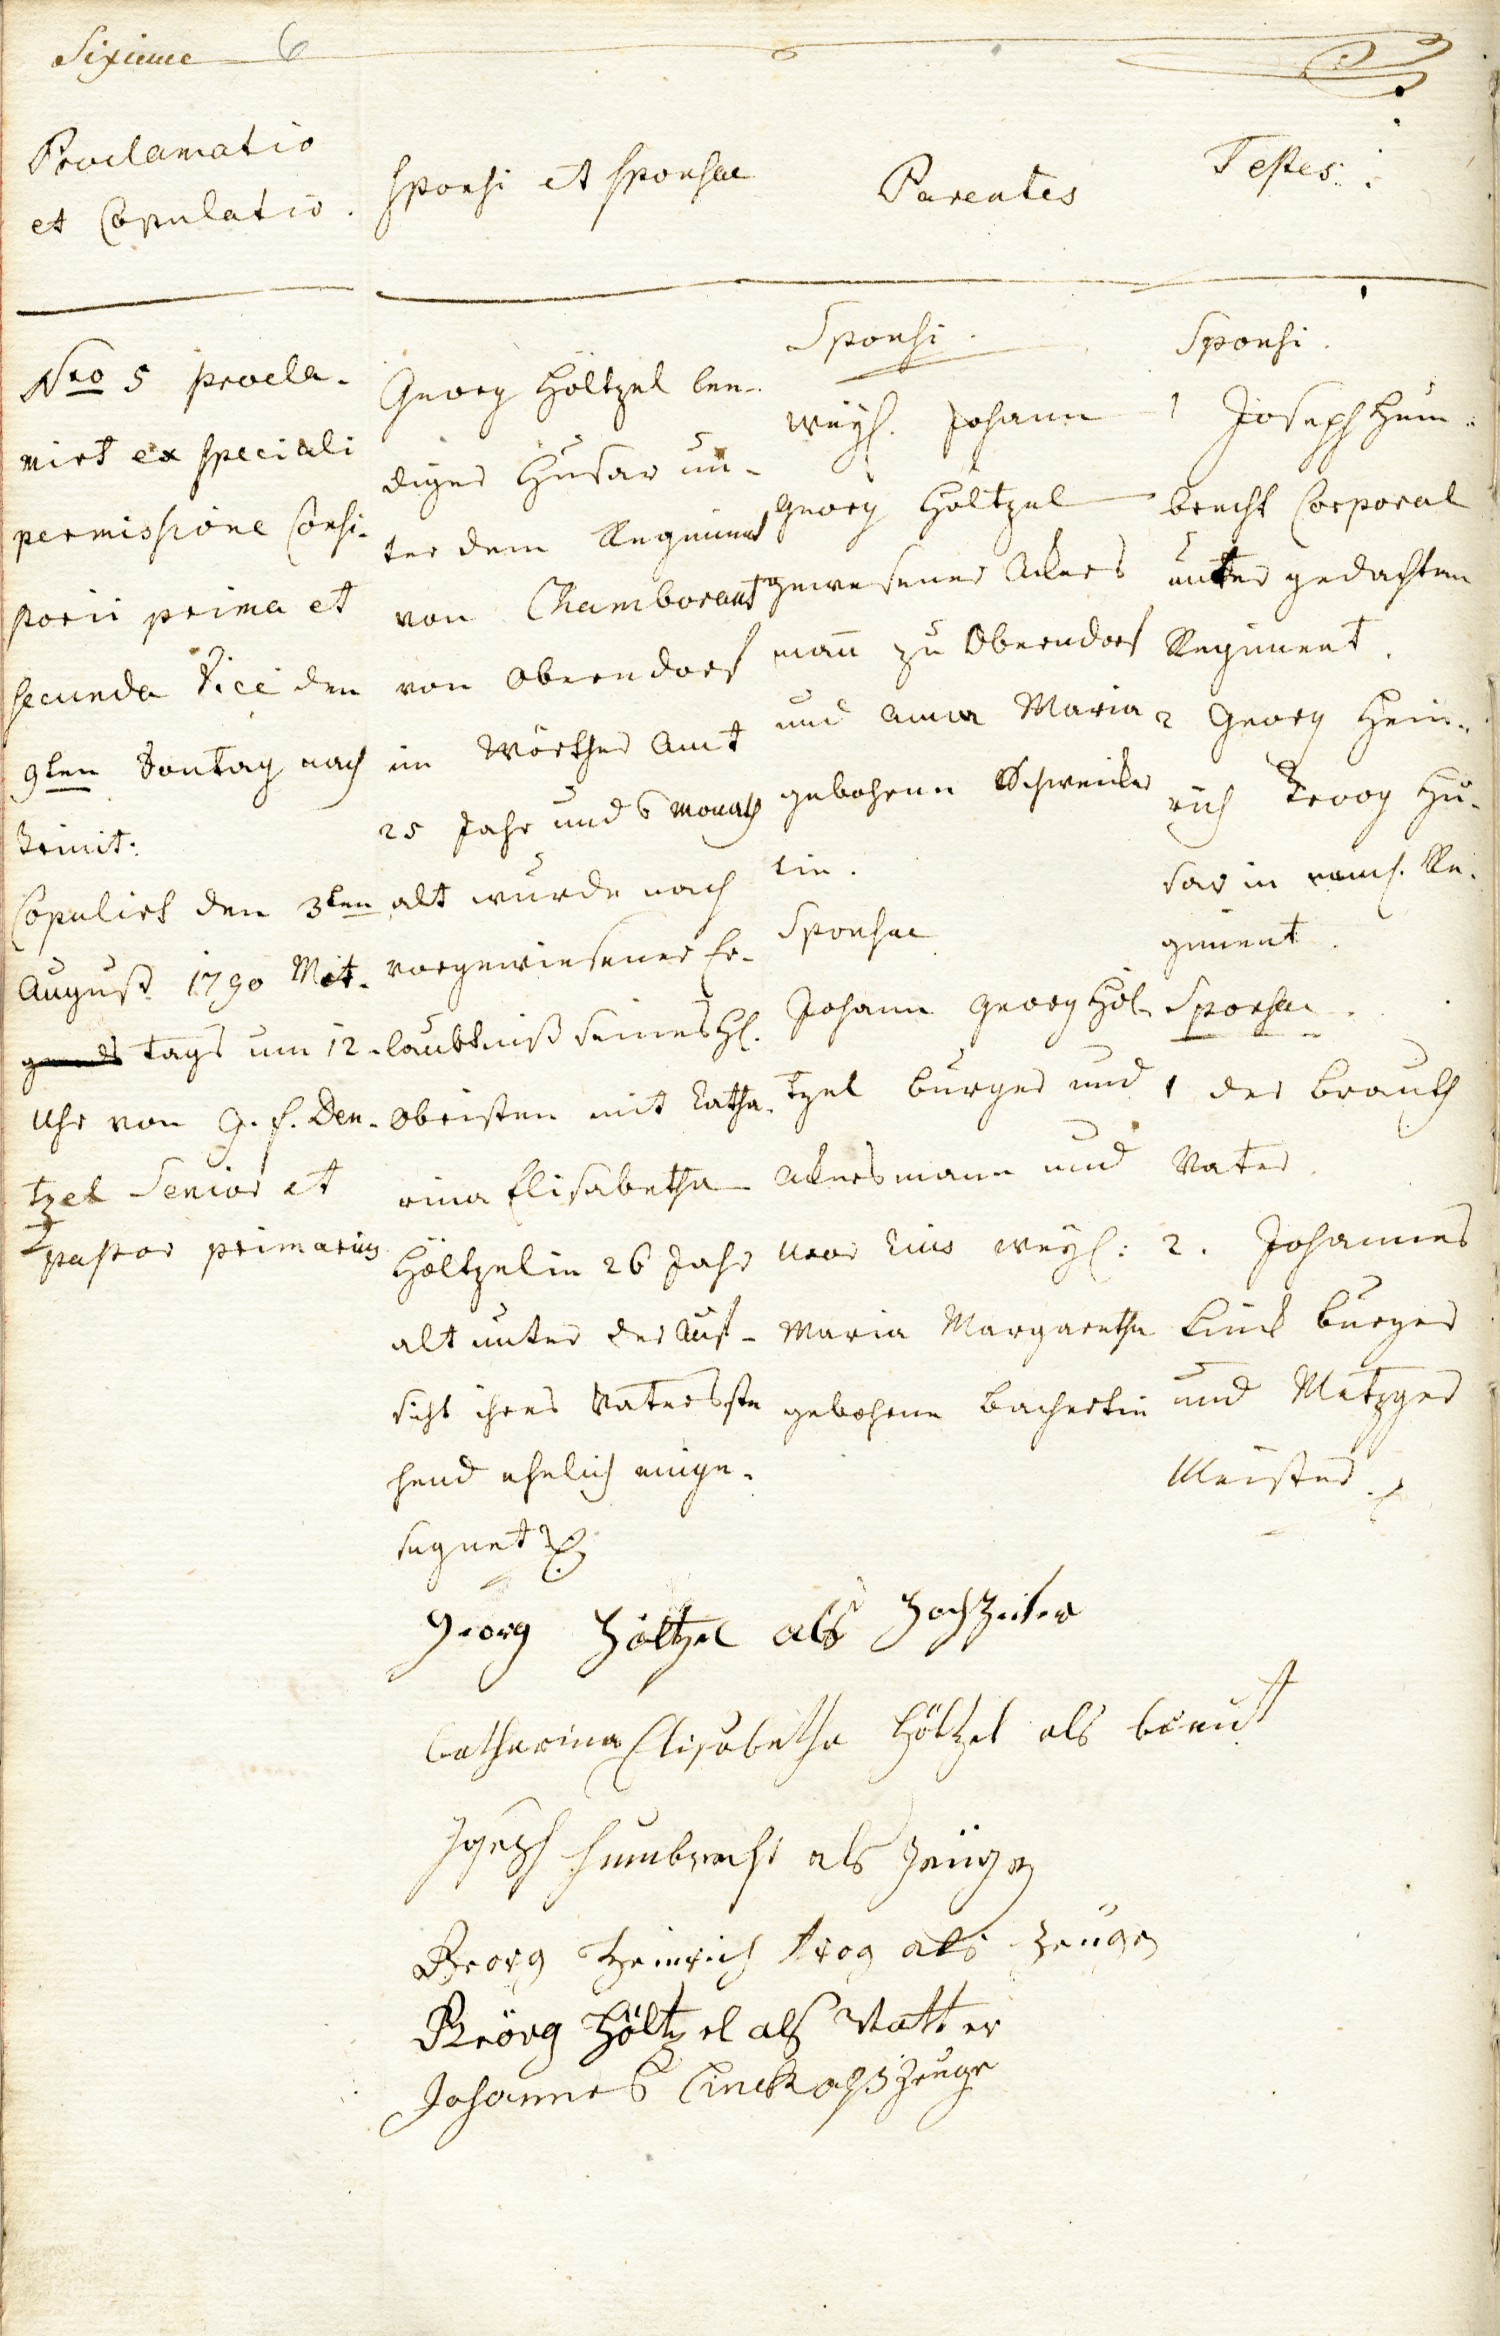 Sixieme 6
Proclamatio
et Copulatio.
Nro 5 procla-
mirt ex speciali
permissione Consi-
storii prima et
secunda Vice den
9ten Sontag nach
Trinit:
Copulirt den 3ten
August 1790 Mit-
tags um 12
Uhr von G. f. Den-
tzel Senior et
pastor primarius
Sponsi et Sponsae
Georg Höltzel lee-
diger Husar un-
ter dem Regiment
von Chamborant
von Oberndorf
im Wörther Amt
25 Jahr und 6 Monath
alt wurde nach
vorgewiesener Er-
laubtniß seines H.
Obristen mit Catha-
rina Elisabetha
Höltzelin 26 Jahr
alt unter der Auf-
sicht ihres Vaters ste
hend ehelich einge-
segnet
Parentes
Sponsi.
weyl. Johann
Georg Höltzel
gewesener Ackers
mann zu Oberndorf
und Anna Maria
gebohrne Schweicker
lin.
Sponsae
Johann Georg Höl-
tzel burger und
Ackersmann und
weyl:
Maria Margaretha
gebohrne Bachertin
Testes:
Sponsi.
1 Joseph Hum-
brecht Corporal
unter gedachtem
Regiment.
2 Georg Hein-
rich Troog Hu-
sar in nemb. Re-
giment.
Sponsae.
1 der Brauth
Vater.
2. Johannes
Linck burger
und Metzger
Meister
Georg Höltzel als Hochzeiter
Catharina Elisabetha Höltzel als braut
Joseph Humbrecht als Zeuge
Georg Heinrich trog als Zeuge
Georg Höltzel als Vatter
Johannes Linck alß Zeuge